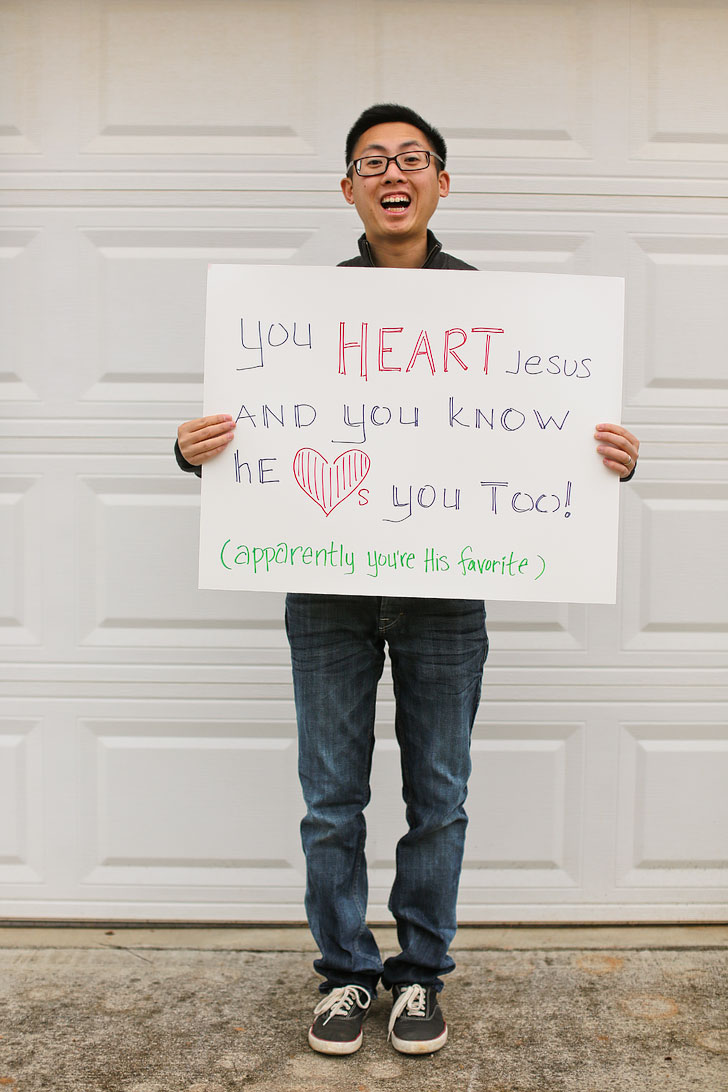 you HEART Jesus
AND you know
hE ♥s you Too!
(apparently you're His favorite)